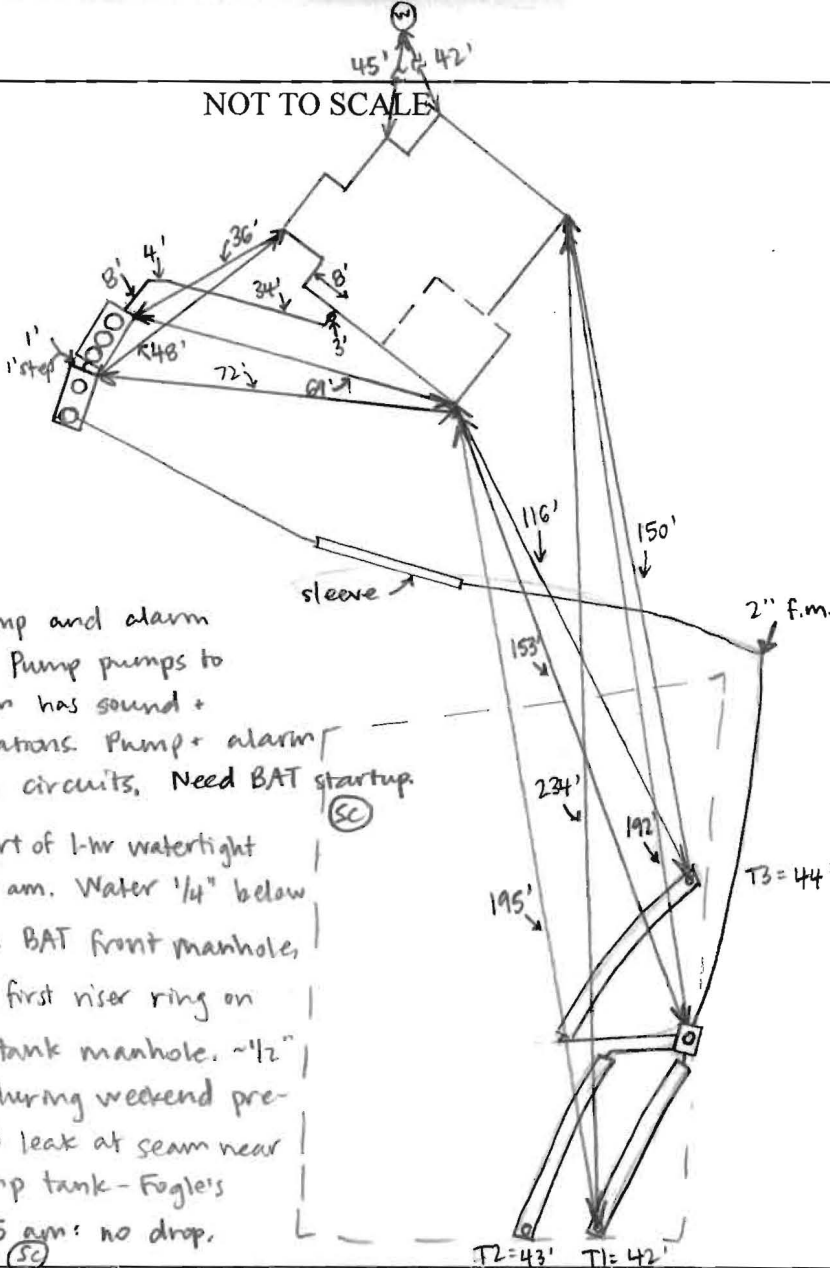 W
45' 42'
NOT TO SCALE
36'
4'
8'
34'
8'
3'
1'
1' step
48'
72'
69'
116'
150'
sleeve
2" f.m.
153'
mp and alarm
Pump pumps to
has sound +
ations. Pump + alarm
circuits. Need BAT startup.
SC
234'
rt of 1-hr watertight
am. Water 1/4" below
192'
T3=44'
BAT front manhole,
195'
first riser ring on
tank manhole. ~1/2"
during weekend pre-
leak at seam near
p tank - Fogle's
5 am: no drop.
SC
T2=43' T1=42'